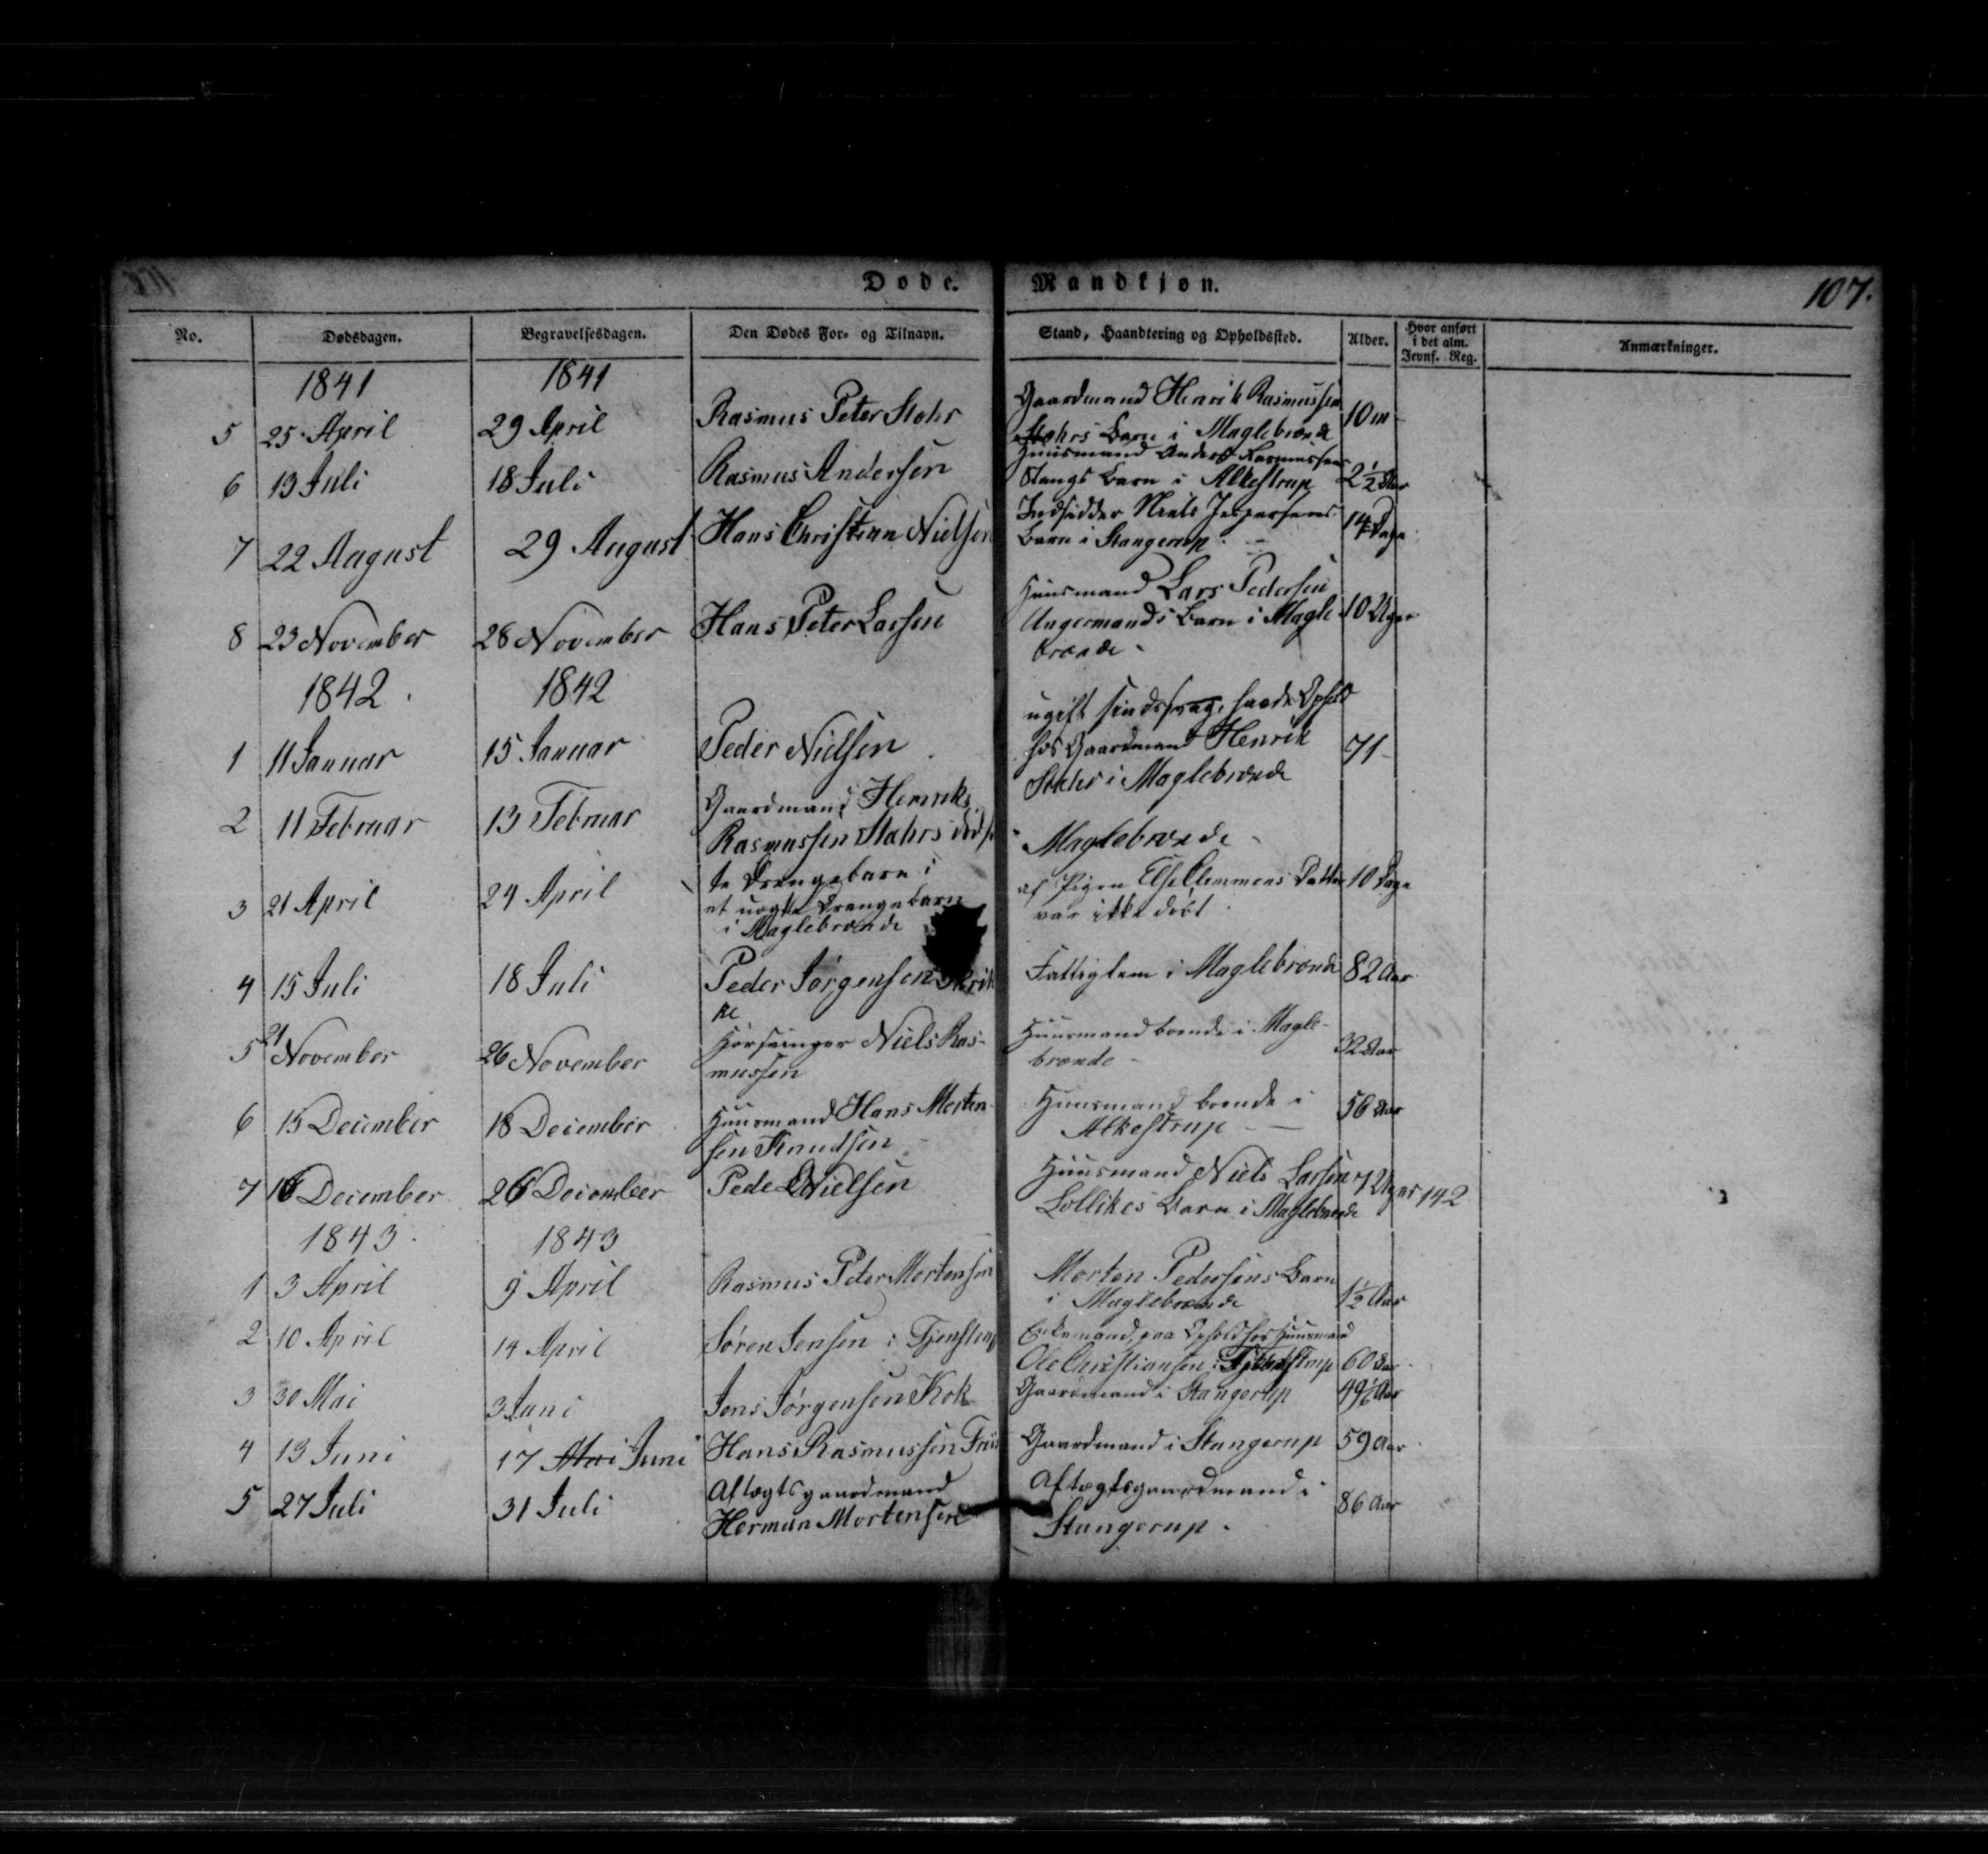 Døde. Mandkjøn. 107.
No. Dødsdagen. Begravelsesdagen. Den Dødes For- og Tilnavn. Stand, Haandtering og Opholdssted. Alder. Hvor anført i det alm. Jevnf. Reg. Anmærkninger.
1841 1841
5 25 April 29 April Rasmus Peter Stohr Gaardmand Henrik Rasmussen 10 m
Stohrs Barn i Maglebrænde
6 13 Juli 18 Juli Rasmus Andersen Huusmand Anders Rasmussens
Stangs Barn i Alkestrup 2 1/2 Aar
7 22 August 29 August Hans Christian Nielsen Indsidder Niels Jespersens 14 Dage
Barn i Stangerup
8 23 November 28 November Hans Peter Larsen Huusmand Lars Pedersen
Ungermands Barn i Magle 10 Uger
brænde
1842 1842
1 11 Januar 15 Januar Peder Nielsen ugift havde Ophold
hos Gaardmand Henrik 71
Stohr i Maglebrænde
2 11 Februar 13 Februar Gaardmand Henriks
Rasmussen Stohrs dødfø Maglebrænde
te Drengebarn i
3 21 April 24 April et uægte Drengebarn af Pigen Else Clemmens Datter 10 Dage
i Maglebrænde var ikke døbt
4 15 Juli 18 Juli Peder Jørgensen Skrik Fattiglem i Maglebrænde 82 Aar
ke
5 21 November 26 November Niels Ras- Huusmand boende i Magle- 32 Aar
mussen brænde
6 15 December 18 December Huusmand Hans Morten- Huusmand boende i 56 Aar
sen Knudsen Alkestrup
7 16 December 26 December Peder Nielsen Huusmand Niels Larsen 7 Uger 142
Lollikes Barn i Maglebrænde
1843 1843
1 3 April 9 April Rasmus Peter Mortensen Morten Pedersens Barn
i Maglebrænde 1 1/2 Aar
2 10 April 14 April Søren Jensen i Enkemand, paa Ophold hos Huusmand
Ole Christiansen i 60 Aar
3 30 Mai 3 Juni Jens Jørgensen Kok Gaardmand i Stangerup 49 1/2 Aar
4 13 Juni 17 Mai Juni Hans Rasmussen Friis Gaardmand i Stangerup 59 Aar
5 27 Juli 31 Juli Aftægtsgaardmand Aftægtsgaardmand i 86 Aar
Herman Mortensen Stangerup.